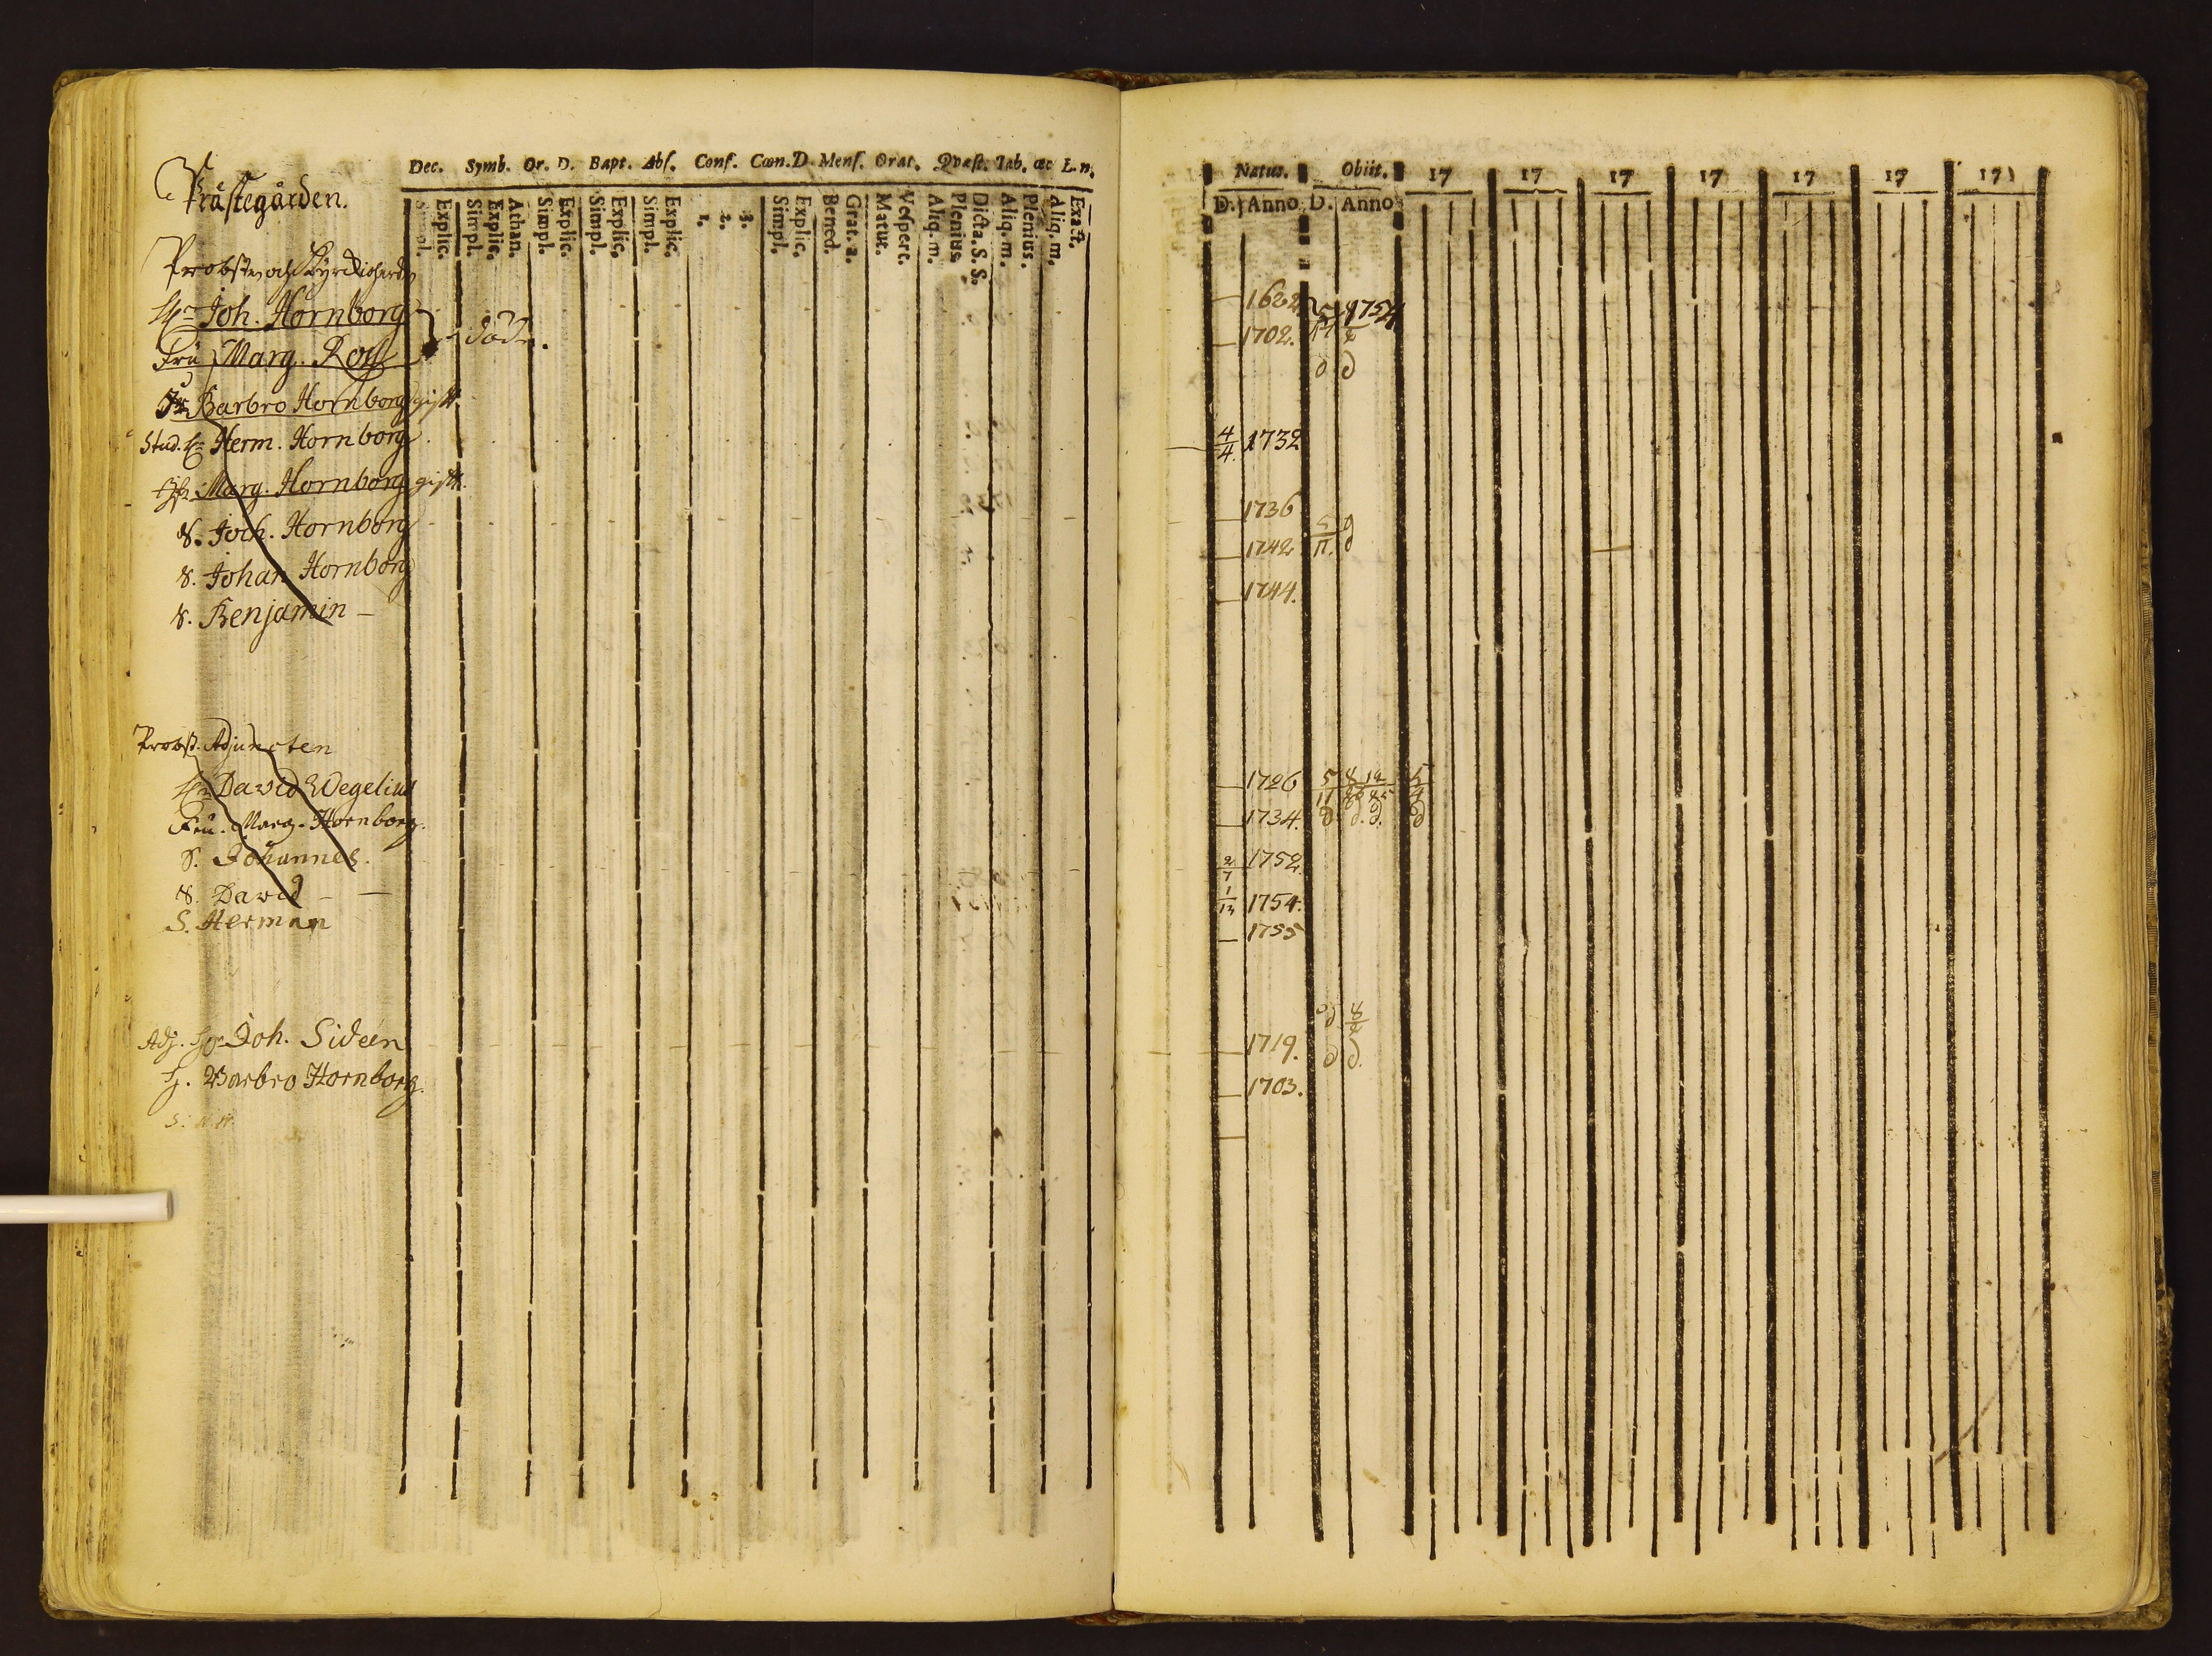 Prästegården.
Dec. Symb. Or. D. Bapt. Abs. Conf. Cœn. D. Mens. Orat. Qvæst. Tab. œc L. n.
Simpl. Explic. Simpl. Explic. Athan. Simpl. Explic. Simpl. Explic. Simpl. Explic. 1. 2. 3. Simpl. Explic. Bened. Grat. a. Matut. Vespert. Aliq. m. Plenius Dicta. S. S. Aliq. m. Plenius. Aliq. m. Exact.
Probsten och Kyrckioherden
Hr Joh. Hornborg
Fru Marg. Ross döde.
Barbro Hornborg gift.
Stud. Hr Herm. Hornborg.
Marg. Hornborg gift.
S. Joch. Hornborg
S. Johan Hornborg
S. Benjamin –
Probst. Adjuncten
Hr David Wegelius
Fru. Marg. Hornborg.
S. Johannes.
S. David –
S. Herman
Adj. Hr Joh. Sideen
H. Barbro Hornborg.
S. N. N.
Natus. Obiit. 17 17 17 17 17 17 17
D. Anno D. Anno
1754
1702.
4/4 1732
1736
1742
1744.
1726
1734.
2/7 1752
1754.
1755
1719.
1703.